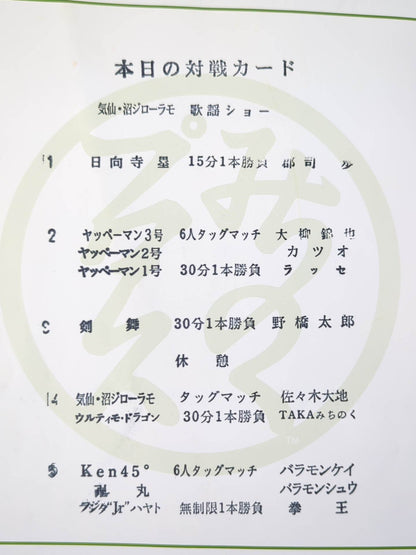 本日の対戦カード
気仙・沼ジローラモ 歌謡ショー
1 日向寺塁 15分1本勝負 郡司歩
2 ヤッペーマン3号 6人タッグマッチ 大柳錦也
ヤッペーマン2号 カツオ
ヤッペーマン1号 30分1本勝負 ラッセ
3 剣舞 30分1本勝負 野橋太郎
休憩
4 気仙・沼ジローラモ タッグマッチ 佐々木大地
ウルティモ・ドラゴン 30分1本勝負 TAKAみちのく
5 Ken45° 6人タッグマッチ バラモンケイ
丸 バラモンシュウ
フジタ"Jr"ハヤト 無制限1本勝負 拳王
みちのく
TM